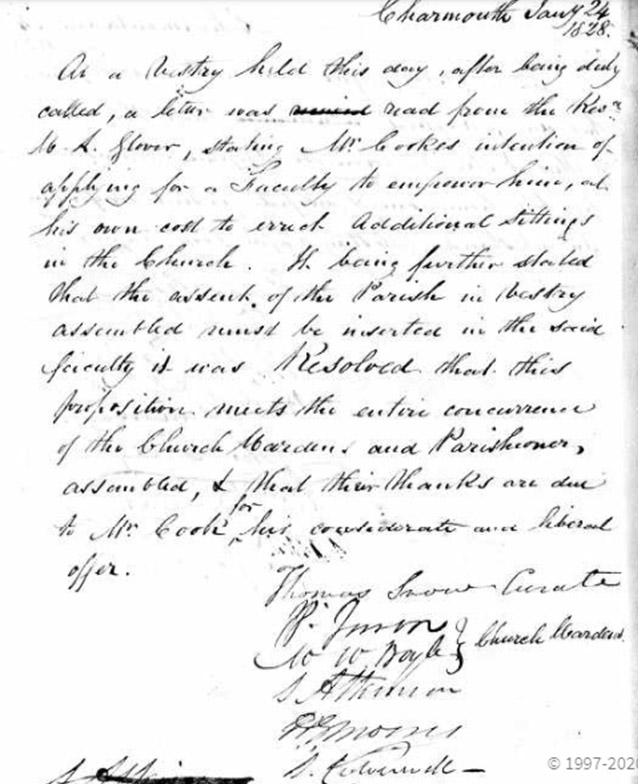 Charmouth Jany 24
1828.
At a Vestry held this day, after being duly
called, a letter was read from the Revd
Glover, stating Mr Cookes intention of
applying for a Faculty to empower him, at
his own cost to erect Additional Sittings
in the Church. It being further stated
that the assent of the Parish in Vestry
assembled must be inserted in the said
faculty it was Resolved that this
proposition meets the entire concurrence
of the Church Wardens and Parishioners
assembled, & that their thanks are due
to Mr Cook for his considerate and liberal
offer.
Thomas Snow Curate
Church Wardens
© 1997-202